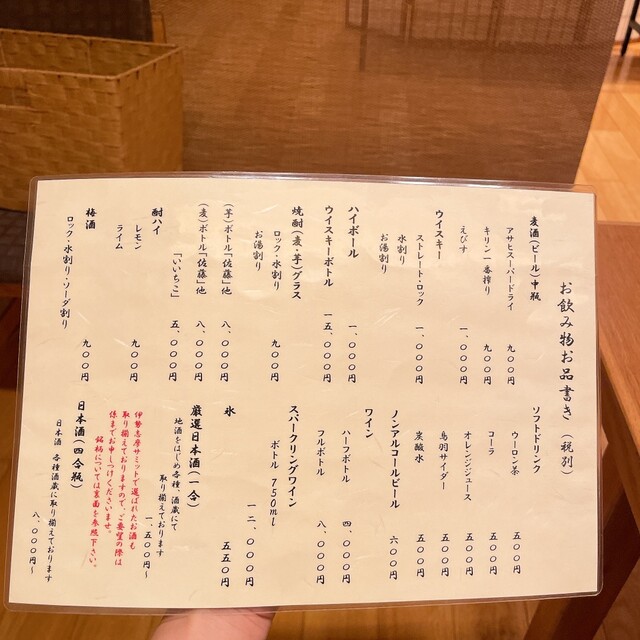 お飲み物お品書き（税別）
麦酒（ビール）中瓶
アサヒスーパードライ 九〇〇円
キリン一番搾り 九〇〇円
えびす 一、〇〇〇円
ウイスキー
ストレート・ロック 一、〇〇〇円
水割り
お湯割り
ハイボール 一、〇〇〇円
ウイスキーボトル 一五、〇〇〇円
焼酎（麦・芋）グラス
ロック・水割り 九〇〇円
お湯割り
（芋）ボトル「佐藤」他 八、〇〇〇円
（麦）ボトル「佐藤」他 八、〇〇〇円
「いいちこ」 五、〇〇〇円
酎ハイ
レモン 九〇〇円
ライム
梅酒
ロック・水割り・ソーダ割り 九〇〇円
ソフトドリンク
ウーロン茶 五〇〇円
コーラ 五〇〇円
オレンジジュース 五〇〇円
鳥羽サイダー 五〇〇円
炭酸水 五〇〇円
ノンアルコールビール 六〇〇円
ワイン
ハーフボトル 四、〇〇〇円
フルボトル 八、〇〇〇円
スパークリングワイン
ボトル 750ml 一二、〇〇〇円
氷 五五〇円
厳選日本酒（一合）
地酒をはじめ各種・酒蔵にて
取り揃えております
一、五〇〇円～
伊勢志摩サミットで選ばれたお酒も
取り揃えておりますので、ご要望の際は
係までお申しつけくださいませ。
銘柄については裏面を参照下さい。
日本酒（四合瓶）
日本酒 各種酒蔵に取り揃えております
八、〇〇〇円～